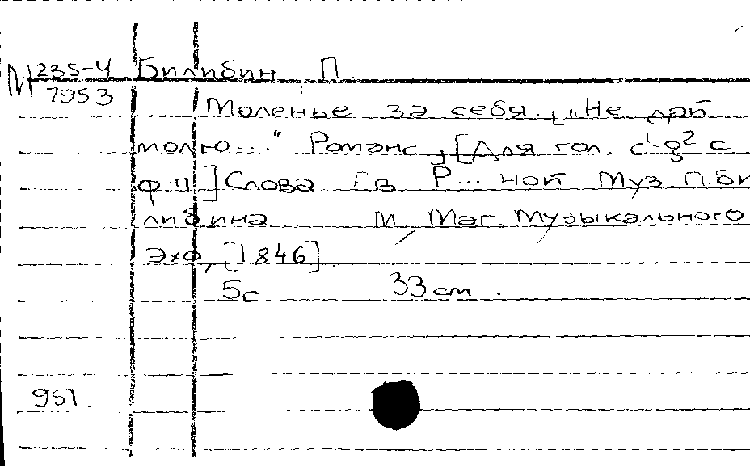 М 235-4 Билибин П
7953
Моленье за себя. „Не для
молю..." Романс, [Для гол. c¹-g² с
ф.п.] Слова Гв Р... ной Муз П.Би
либина М, Маг. Музыкального
Эхо, [1846].
5с 33 cm.
951